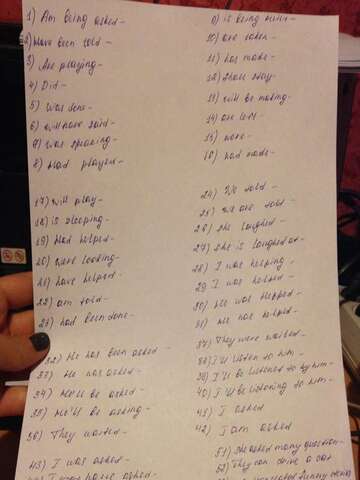 1) Am being asked-
2) Have been told-
3) Are playing-
4) Did-
5) Was done-
6) will have said-
7) Was speaking-
8) Had played-
9) is being
10) are taken-
11) has made-
12) Shall stay-
13) will be making-
14) are left-
15) were-
16) had made-
17) will play-
18) is sleeping-
19) Had helped-
20) Were looking-
21) have helped-
22) am told-
23) had been done-
24) We told-
25) We are told-
26) She laughed-
27) She is laughed at-
28) I was helping-
29) I was helped-
30) He was helped-
31) He has helped-
32) He has been asked-
33) He has asked-
34) He'll be asked-
35) He'll be asking-
36) They waited-
37) They were waited-
38) I'll listen to him-
39) I'll be listened to by him-
40) I'll be listening to him-
41) I asked
42) I am asked
43) I was asked-
51) She asked many question-
52) They can drive a car